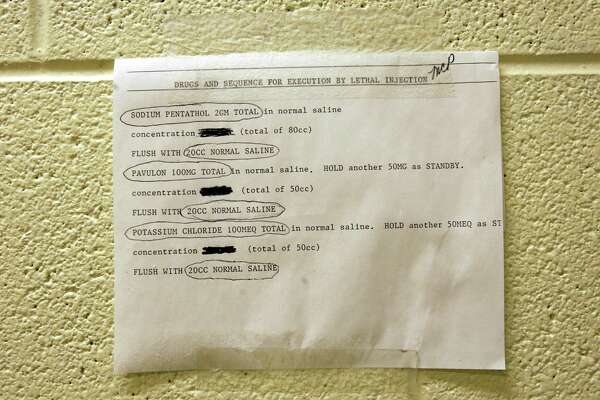 DRUGS AND SEQUENCE FOR EXECUTION BY LETHAL INJECTION MCP
SODIUM PENTATHOL 2GM TOTAL in normal saline
concentration (total of 80cc)
FLUSH WITH 20CC NORMAL SALINE
PAVULON 100MG TOTAL in normal saline. HOLD another 50MG as STANDBY.
concentration (total of 50cc)
FLUSH WITH 20CC NORMAL SALINE
POTASSIUM CHLORIDE 100MEQ TOTAL in normal saline. HOLD another 50MEQ as ST
concentration (total of 50cc)
FLUSH WITH 20CC NORMAL SALINE